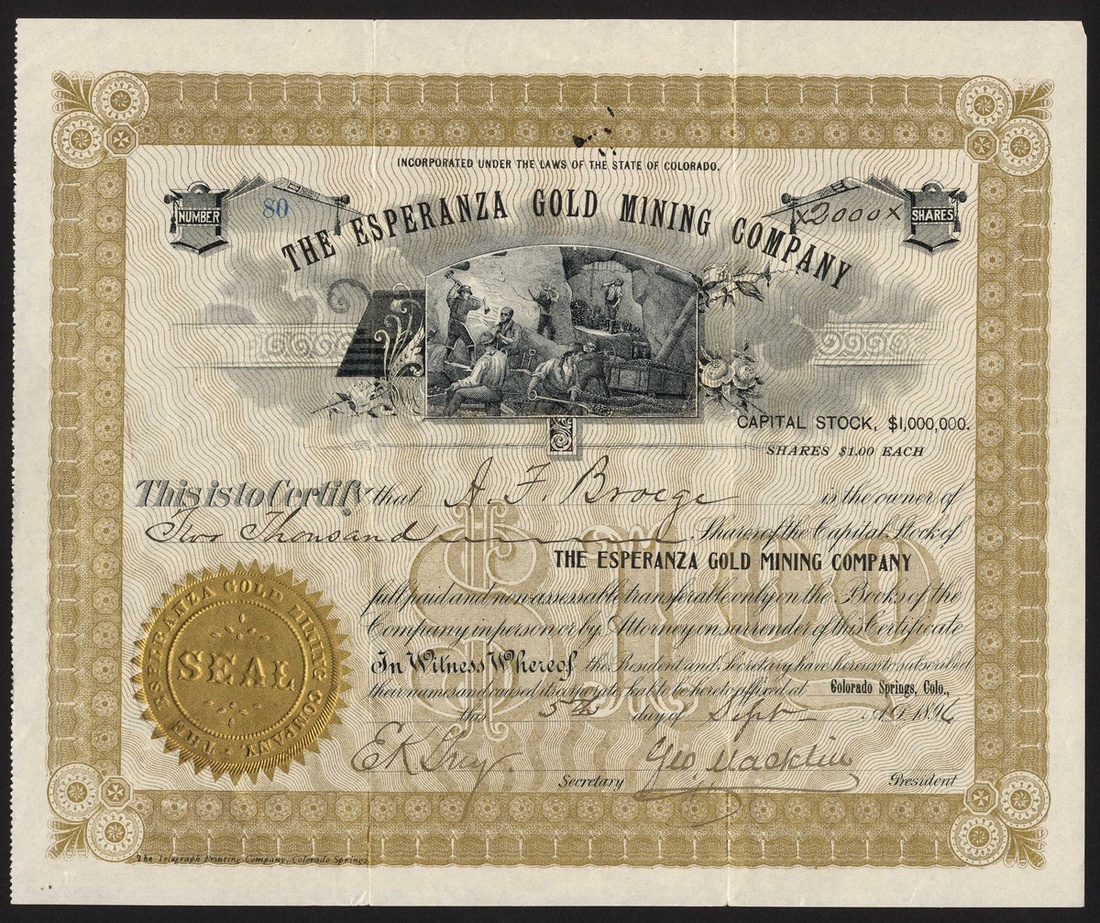 INCORPORATED UNDER THE LAWS OF THE STATE OF COLORADO.
NUMBER 80
x2000x SHARES
THE ESPERANZA GOLD MINING COMPANY
CAPITAL STOCK, $1,000,000.
SHARES $1.00 EACH
This is to Certify that A. F. Broege is the owner of
Two Thousand Shares of the Capital Stock of
THE ESPERANZA GOLD MINING COMPANY
full paid and non-assessable transferable only on the Books of the
Company in person or by Attorney on surrender of this Certificate
In Witness Whereof the President and Secretary have hereunto subscribed
their names and caused its corporate seal to be hereto affixed at Colorado Springs, Colo.,
this 5th day of Sept A.D. 1896
E K Grey. Secretary Geo President
THE ESPERANZA GOLD MINING COMPANY
SEAL
$1.00
The Telegraph Printing Company, Colorado Springs